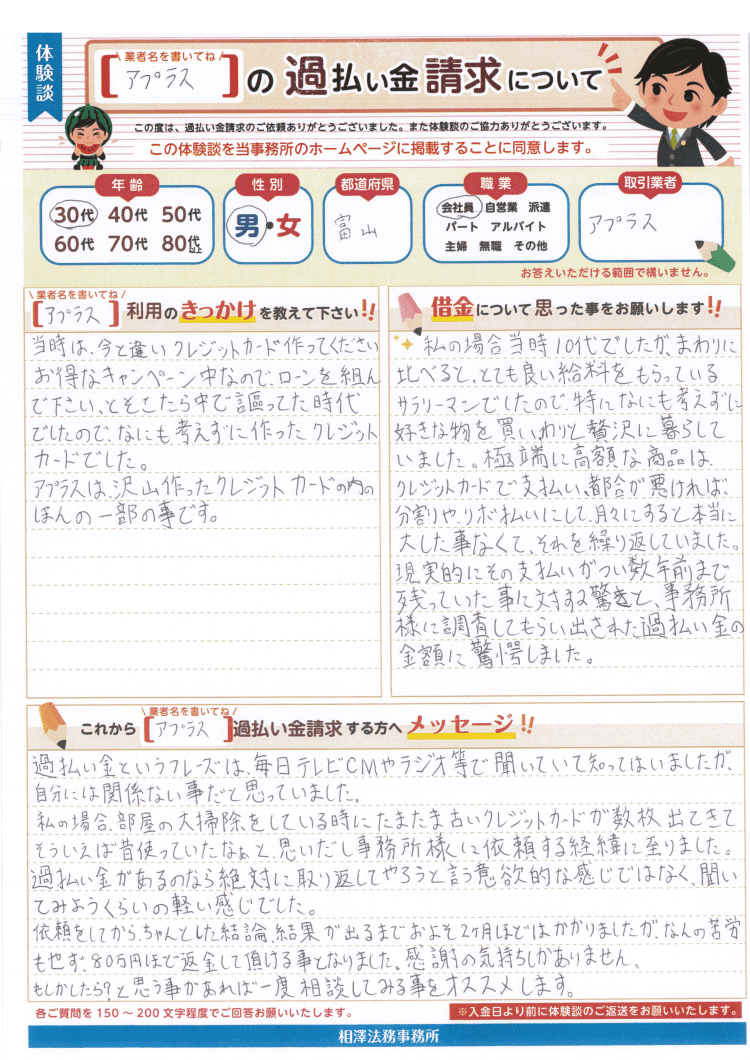 体験談
\ 業者名を書いてね /
[アプラス]の過払い金請求について
この度は、過払い金請求のご依頼ありがとうございました。また体験談のご協力ありがとうございます。
この体験談を当事務所のホームページに掲載することに同意します。
年齢
30代 40代 50代
60代 70代 80代以上
性別
男・女
都道府県
富山
職業
会社員 自営業 派遣
パート アルバイト
主婦 無職 その他
取引業者
アプラス
お答えいただける範囲で構いません。
\ 業者名を書いてね /
[アプラス]利用のきっかけを教えて下さい!!
当時は、今と違いクレジットカード作ってください
お得なキャンペーン中なので、ローンを組ん
で下さい、とそこたら中で謳ってた時代
でしたので、なにも考えずに作ったクレジット
カードでした。
アプラスは、沢山作ったクレジットカードの内の
ほんの一部の事です。
借金について思った事をお願いします!!
私の場合当時10代でしたが、まわりに
比べると、とても良い給料をもらっている
サラリーマンでしたので、特になにも考えずに
好きな物を買いわりと贅沢に暮らして
いました。極端に高額な商品は、
クレジットカードで支払い、都合が悪ければ、
分割やリボ払いにして、月々にすると本当に
大した事なくて、それを繰り返していました。
現実的にその支払いがつい数年前まで
残っていた事に対する驚きと、事務所
様に調査してもらい出された過払い金の
金額に驚愕しました。
\ 業者名を書いてね /
これから[アプラス]過払い金請求する方へメッセージ!!
過払い金というフレーズは、毎日テレビCMやラジオ等で聞いていて知ってはいましたが、
自分には関係ない事だと思っていました。
私の場合、部屋の大掃除をしている時にたまたま古いクレジットカードが数枚出てきて
そういえば昔使っていたなぁと、思いだし事務所様に依頼する経緯に至りました。
過払い金があるのなら絶対に取り返してやろうと言う意欲的な感じではなく、聞い
てみようくらいの軽い感じでした。
依頼をしてから、ちゃんとした結論、結果が出るまでおよそ2ヶ月ほどはかかりましたが、なんの苦労
も也ず、80万円ほど返金して頂ける事となりました、感謝の気持ちしかありません。
もしかしたら?と思う事があれば一度相談してみる事をオススメします。
各ご質問を150~200文字程度でご回答お願いいたします。
※入金日より前に体験談のご返送をお願いいたします。
相澤法務事務所